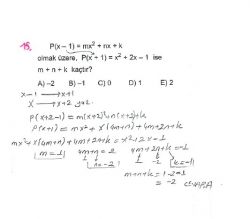 15. P(x – 1) = mx² + nx + k
olmak üzere, P(x + 1) = x² + 2x – 1 ise
m + n + k kaçtır?
A) –2 B) –1 C) 0 D) 1 E) 2
x-1 → x+1
x → x+2
P(x+2-1) = m(x+2)²+n(x+2)+k
P(x+1) = mx² + x(4m+n)+4m+2n+k
mx²+x(4m+n)+4m+2n+k = x²+2x-1
m=1 4m+n=2 4m+2n+k=-1
n=-2 k=-1
m+n+k=1-2-1
= -2 CEVAP A